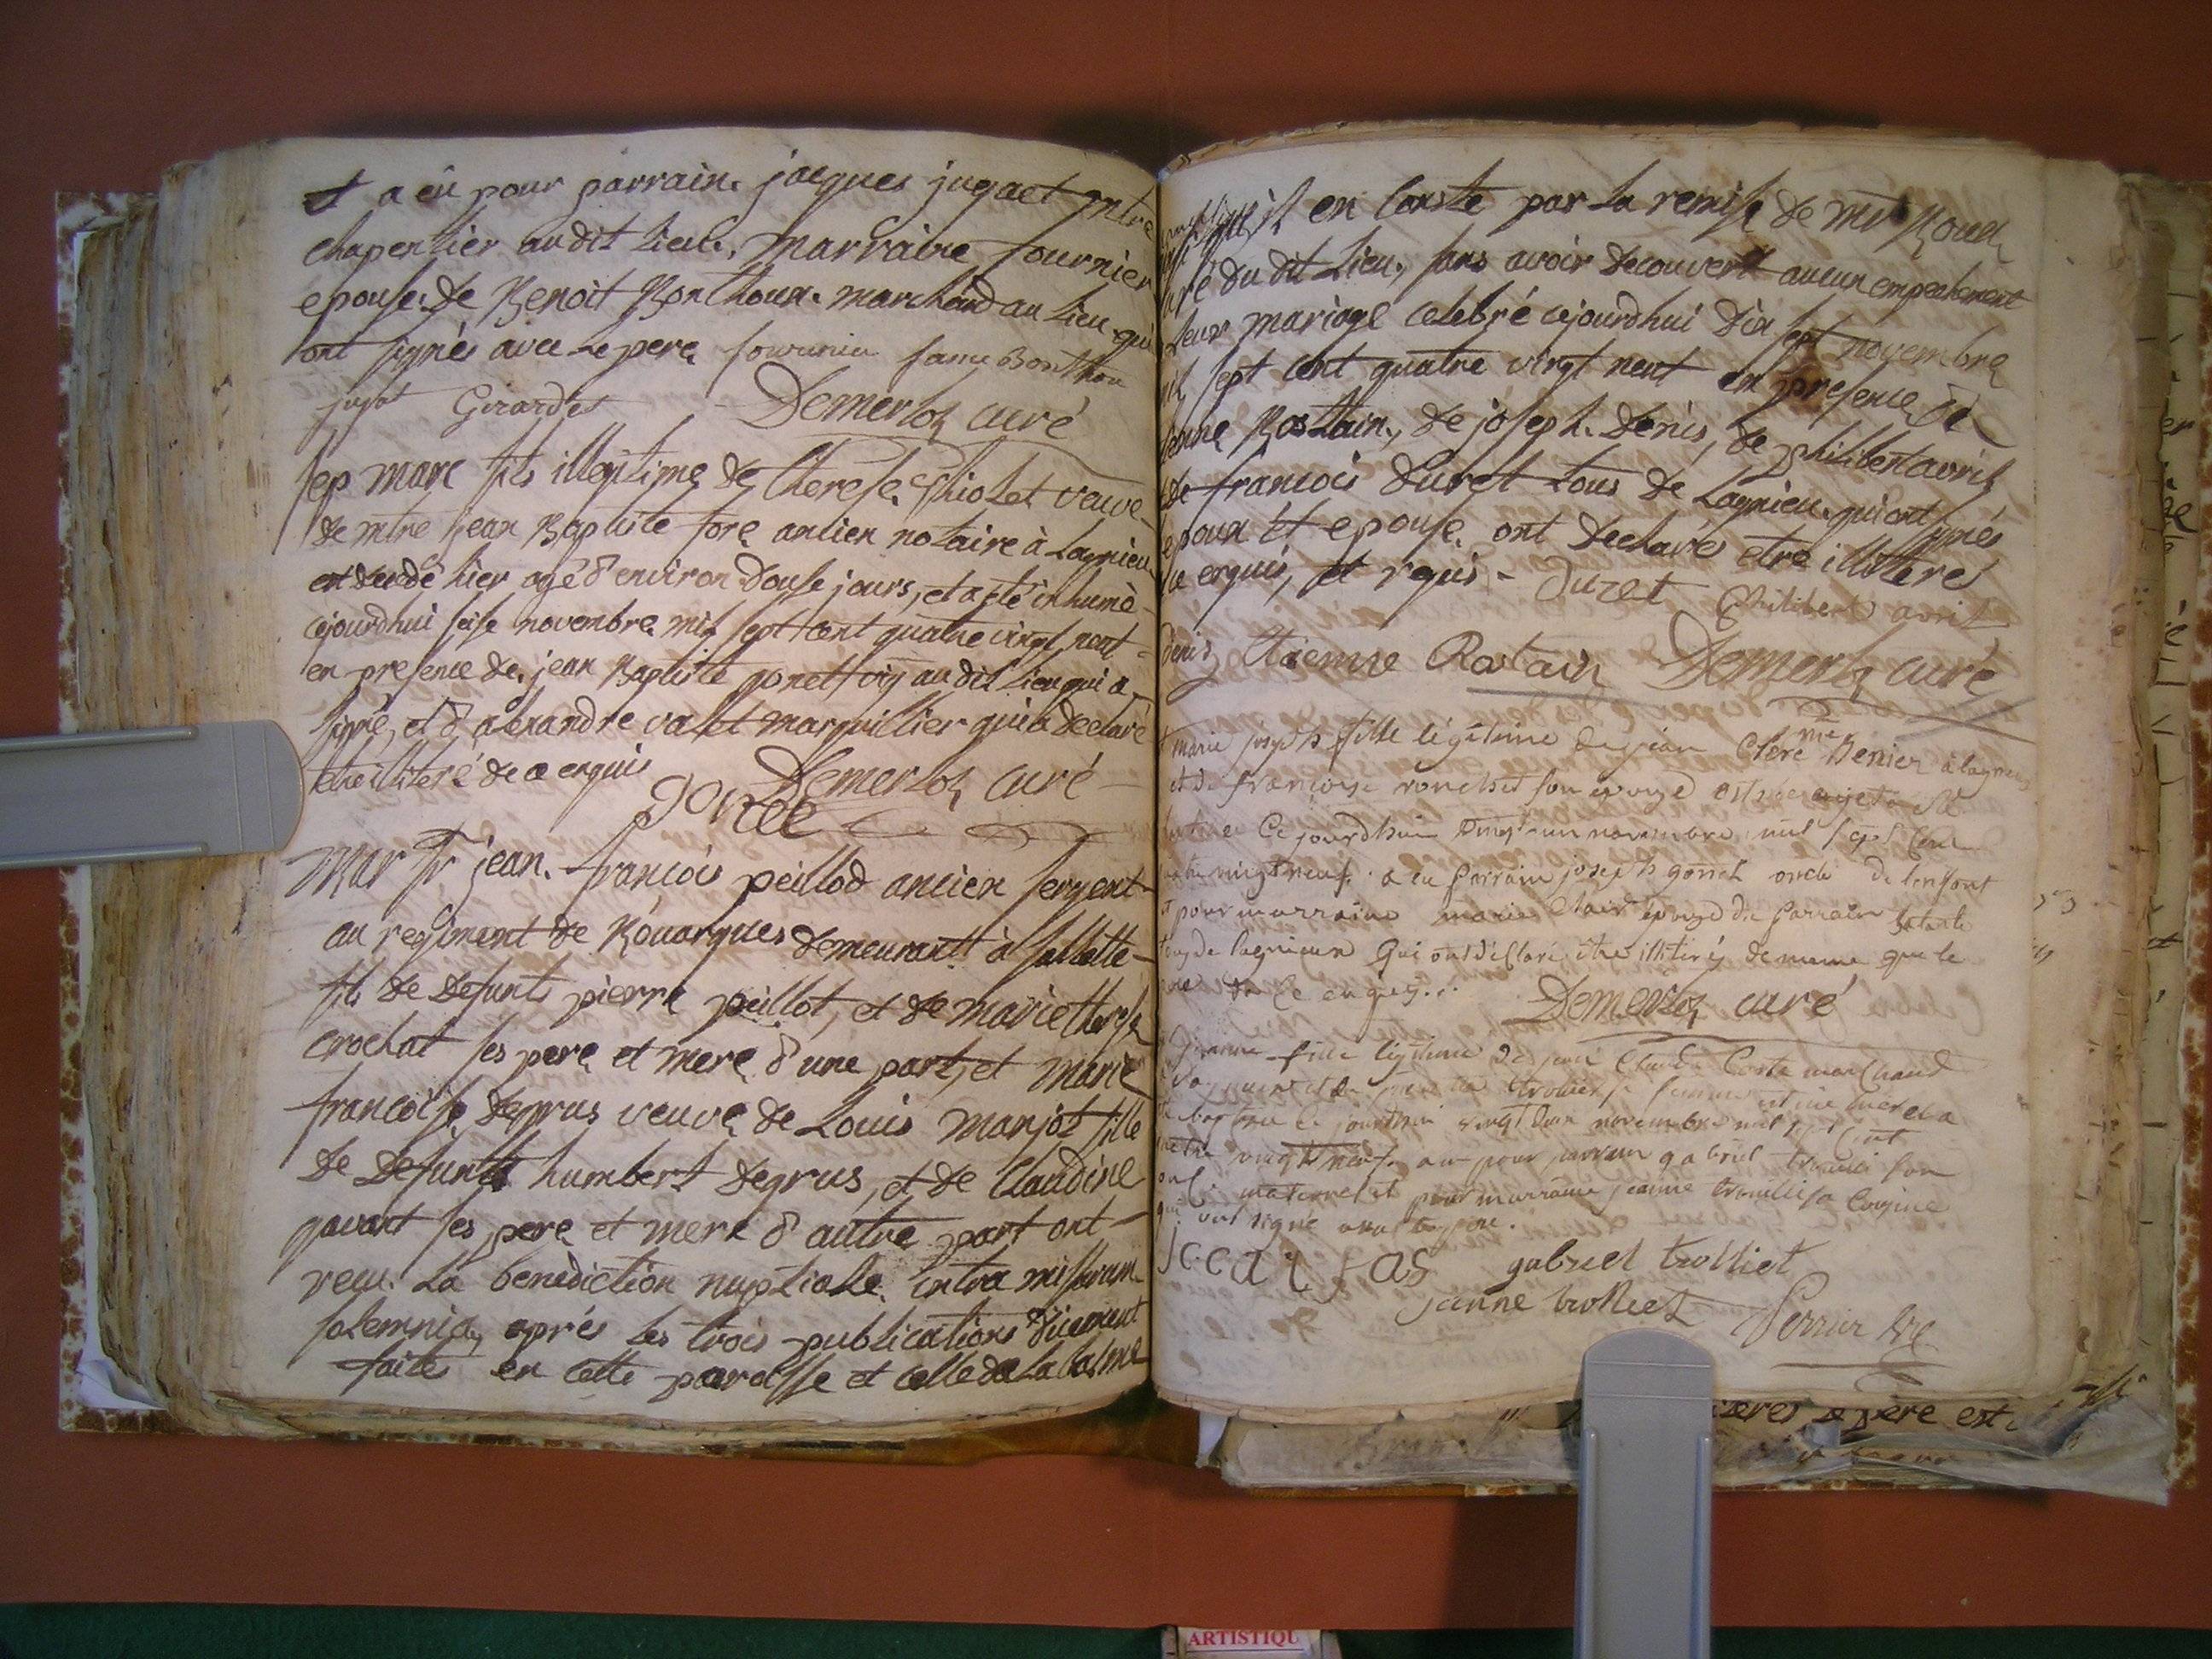 et a eû pour parrain jacques jugaet mtre
chapentier au dit lieu. Marraine fournier
epouse de Benoit Bonthoux marchand au lieu qui
ont signés avec le pere fournier fame Bonthou
jugat Girardet Demerloz curé
sep marc fils illegitime de therese thiolet veuve
de mtre jean Baptiste fore ancien notaire à Lagnieu
est decedé hier agé d'environ douse jours, et a eté inhumé
cejourdhui seise novembre mil sept cent quatre vingt neuf
en presence de jean Baptiste gonet vig au dit lieu qui a
signé, et d'alexandre valet marguillier qui a declaré
etre illiteré de ce enquis
gonet Demerloz curé
Mar Sr jean françois peillod ancien sergent
au regiment de Roüargues demeurant à
fils de defunts pierre peillot, et de marie therese
crochat ses pere et mere d'une part, et marie
francoise degrus veuve de Louis marjot fille
de defunts humbert degrus, et de Claudine
gavant ses pere et mere d'autre part ont
recu la benediction nuptiale intra missarum
solemnia, aprés les trois publications düement
faites en cette paroisse et celle de la balme
il en conste par la remise de mr Roux
curé du dit lieu, sans avoir decouvert aucun empechement
leur mariage celebré cejourdhui dix sept novembre
mil sept cent quatre vingt neuf en presence de
etienne Rostain, de joseph denis, de philibert avril
et de francois duret tous de Lagnieu qui ont signés
epoux et epouse ont declarés etre illiteres
de ce enquis, et requis - Duret Philibert avril
denis Etienne Rostain Demerloz curé
marie joseph fille légitime de jean Clere me Denier à lagnieu
et de françoise ronchet son épouze
Ce jourdhui vingt un novembre mil sept cent
quatre vingt neuf. a eu parrain joseph gonet oncle de lenfant
et pour marraine marie Clair épouze du parrain
tous de lagnieux Qui ont déclaré être illitérés de meme que le
pere de ce enquis...
Demerloz curé
Jeanne fille légitime de jean Claude Costa marchand
à Lagnieu et de trolliet sa femme est née hier et a
été baptisée ce jourdhui vingt deux novembre mil sept cent
quatre vingt neuf. a eu pour parrain gabriel trolliet son
oncle maternel et pour marraine jeanne trolliet sa cousine
qui ont signé avec le pere.
gabriel trolliet
janne trolliet Perrier vre
ARTISTIQU